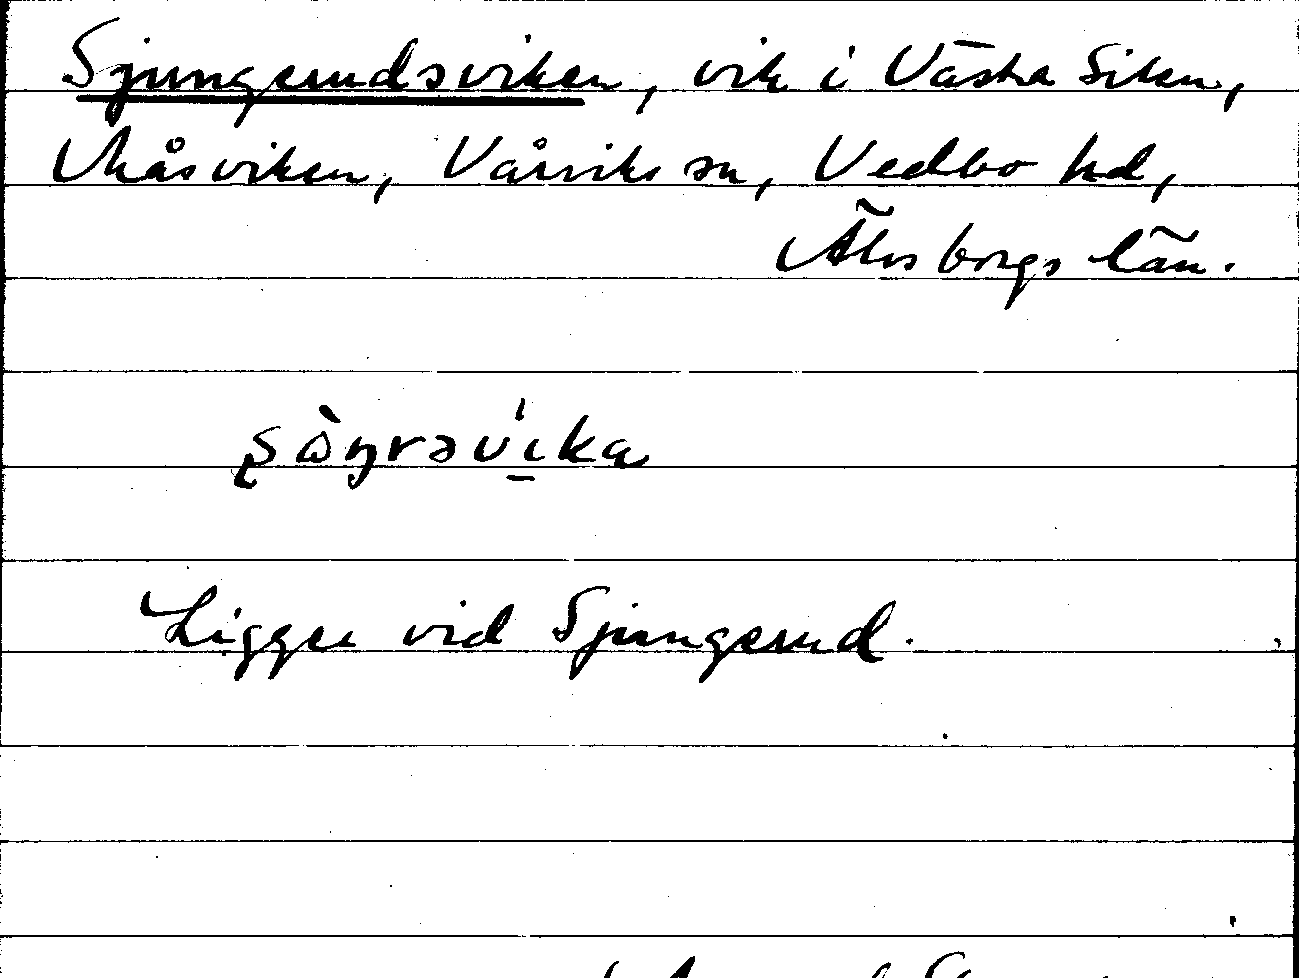 Sjungerudsviken, vik i Västra Siken,
Vråsviken, Vårviks sn, Vedbo hd,
Älvsborgs län.
ʂὼŋrəvi̱ka
Ligger vid Sjungerud.